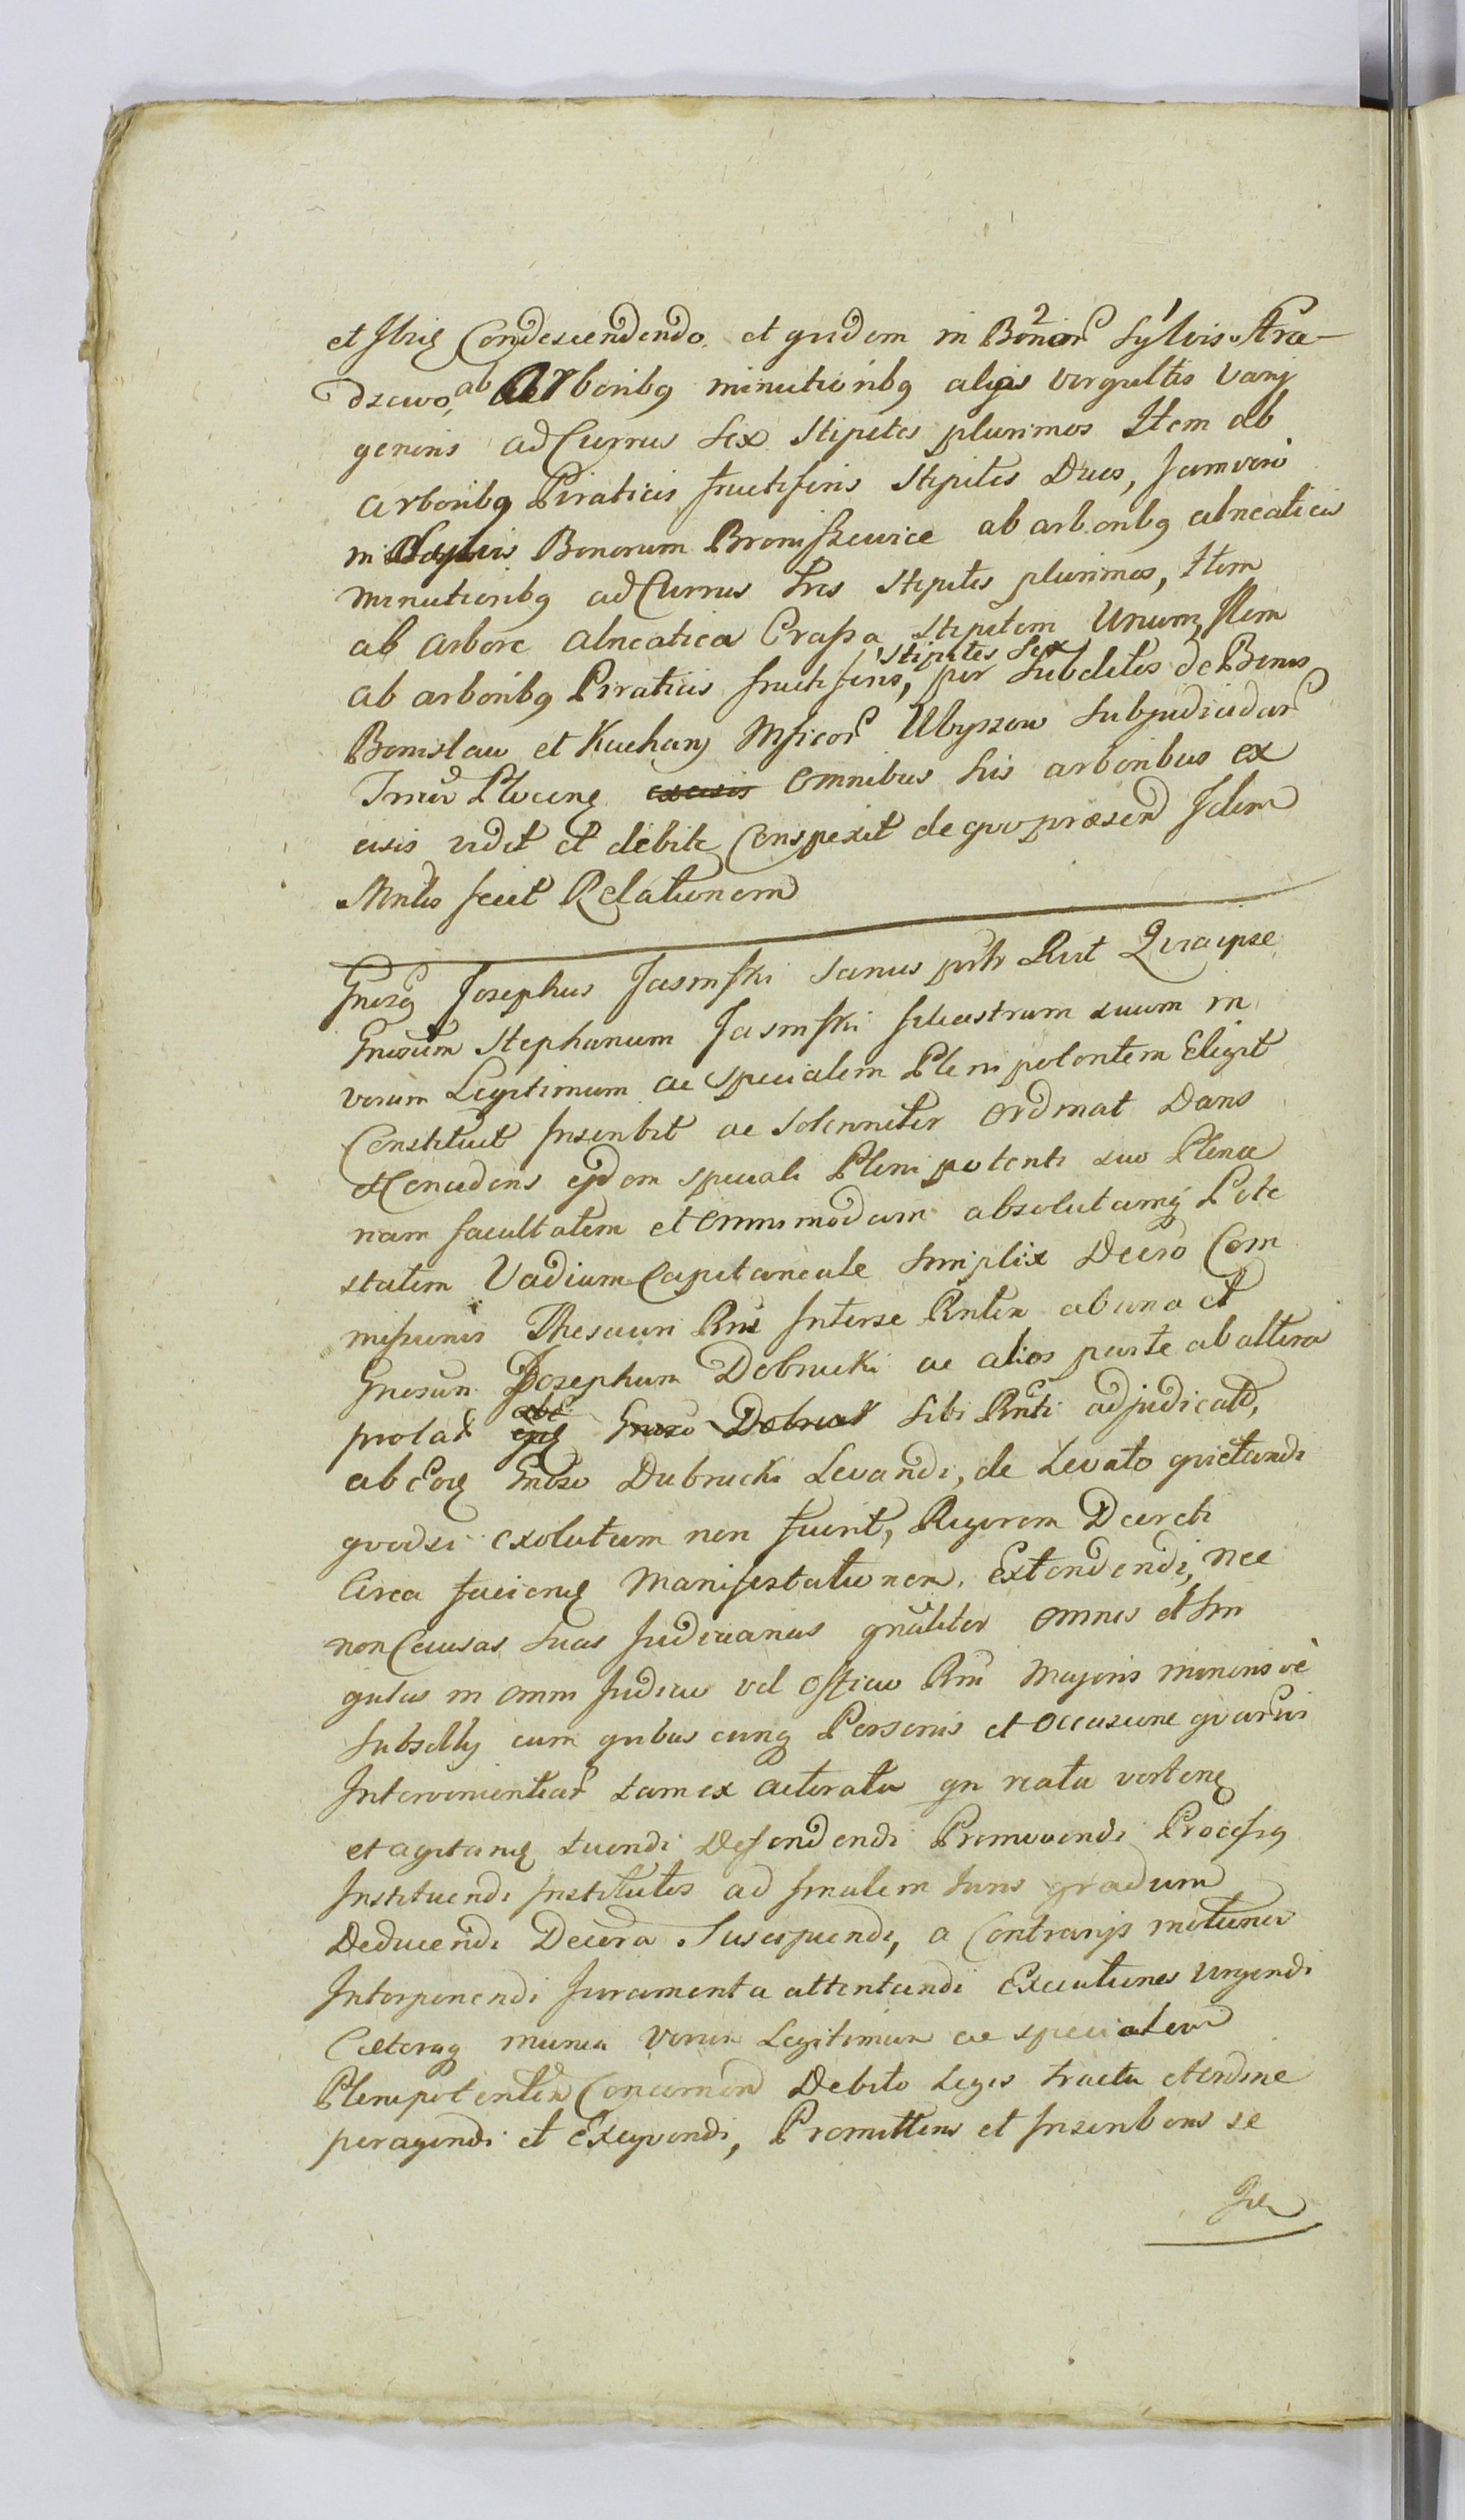 et Ibiq Condescendendo et quidem in Bonor Sylvis Stra-
dzewo, ab Arboribq minutioribq alijs virgultis varij
generis ad Currus Sex Stipites plurimos Item ab
arboribq Piraticis fructiferis Stipites Duos, Jam vero
in Sylvis Bonorum Broniszewice ab arboribq alneaticis
minutioribq ad Currus tres Stipites plurimos, Item
ab arbore alneatica Crassa Stipitem Unum, Item
Stipites Sex
ab arboribq Piraticis fructiferis, per Subditos de Bonis
Bonislaw et Kuchary Mficor Ubyszow Subjudicatar
Plocenq excisis omnibus his arboribus ex
cisis vidit et debite Conspexit de quo praesend Idem
Mnlis fecit Relationem
Gnosq Josephus Jasinski Sanus pntr Rut Quaipse
Gnosum Stephanum Jasinski filiastrum suum in
verum Legitimum ac specialem Plenipotentem Eligit
Constituit Inscribit ac Solenniter ordinat Dans
et Concedens ejdem speciali Plenipotenti suo Plena
nam facultatem et omnimodam absolutamq Pote
statem Vadium Capitaneale Simplex Decro Com
missionis Thesauri Rni Interse Rntem ab una et
Gnosum Josephum Dobrucki ac alios parte ab altera
prolat Gnoso Dobruck Sibi Rnti adjudicatd,
ab Eoq Gnoso Dubrucki Levandi, de Levato quietandi
quodsi exolutum non fuerit, Rigorem Decreti
Circa facienq Manifestationem. Extendendi, nec
non Causas Suas Judiciarias gnaliter omnes et Sin
gulas in omni Judicio vel Officio Rni Majoris minorisve
Subsellij cum quibus cunq Personis et occasione quarvis
Intervenientiar tam ex actoratu qn reatu vertenq
et agitanq tuendi Defendendi Promovendi Processq
Instituendi Institutos ad finalem Juris gradum
Deducendi Decreta Suscipiendi, a Contrarijs motiones
Interponendi Juramenta attentandi Executiones Urgendi
Caeteraq munia Verum Legitimum ac specialem
Plenipotentem Concernen Debito Legis tractu et ordine
peragendi et Exequendi, Promittens et Inscribens se